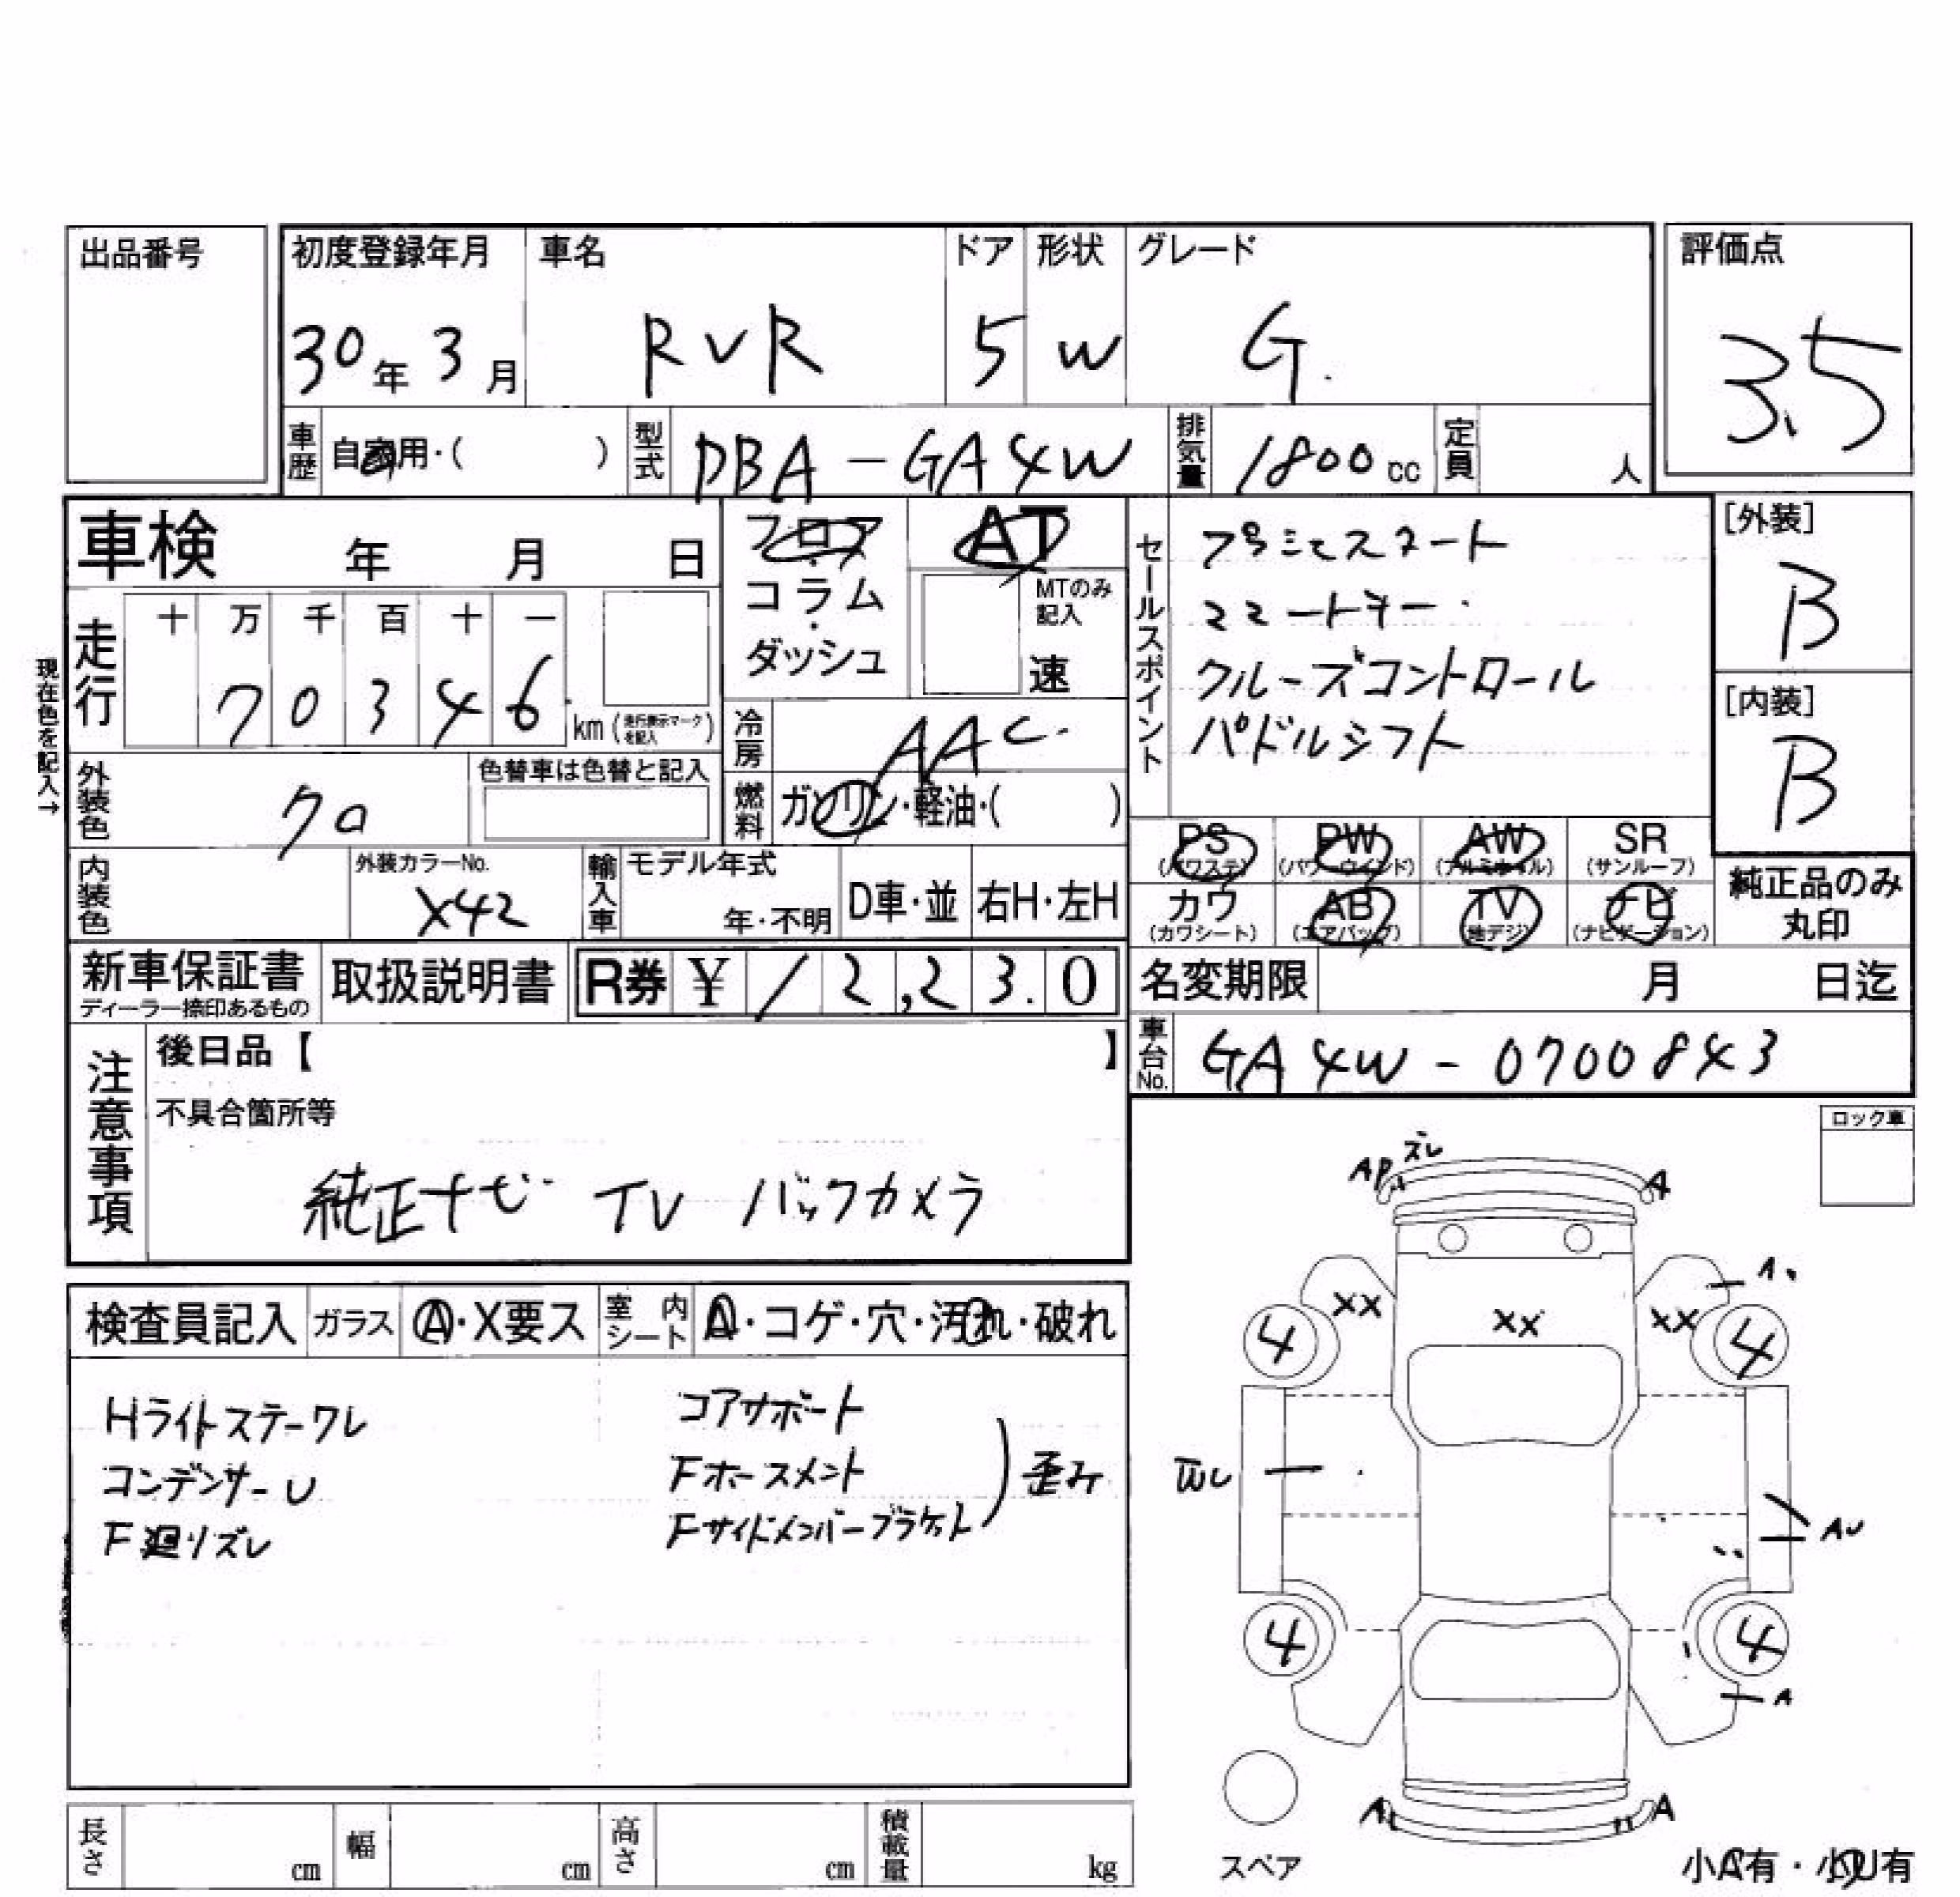 出品番号
初度登録年月 車名 ドア 形状 グレード 評価点
30年 3月 RVR 5 W G. 3.5
車歴 自家用・( ) 型式 DBA-GA4W 排気量 1800cc 定員 人
車検 年 月 日
フロア・コラム・ダッシュ
AT
MTのみ記入
速
走行 十 万 千 百 十 一
7 0 3 4 6 km (走行表示マークを記入)
現在色を記入→
冷房 AAC
外装色 クロ 色替車は色替と記入
燃料 ガソリン・軽油・( )
内装色 外装カラーNo. X42
輸入車 モデル年式 年・不明 D車・並 右H・左H
セールスポイント
スマートキー
クルーズコントロール
パドルシフト
[外装] B
[内装] B
PS (パワステ) PW (パワーウインド) AW (アルミホイル) SR (サンルーフ)
カワ (カワシート) AB (エアバッグ) TV (地デジ) ナビ (ナビゲーション)
純正品のみ丸印
新車保証書 ディーラー捺印あるもの 取扱説明書 R券 ¥ 12,23.0
名変期限 月 日迄
車台No. GA4W-0700843
注意事項 後日品【 】
不具合箇所等
純正ナビ TV バックカメラ
検査員記入 ガラス A・X要ス 室内シート A・コゲ・穴・汚れ・破れ
Hライトステーワレ
コンデンサーU
F廻りズレ
コアサポート
Fホースメント
Fサイドメンバーブラケット
歪み
ロック車
ズレ
AP A
A
XX XX XX
4 4
AU
4 4
A
A A
スペア
小A有・小U有
長さ cm 幅 cm 高さ cm 積載量 kg